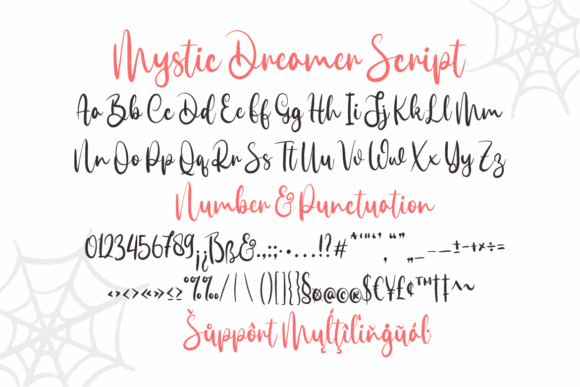 Mystic Dreamer Script
Aa Bb Cc Dd Ee Ff Gg Hh Ii Jj Kk Ll Mm
Nn Oo Pp Qq Rr Ss Tt Uu Vv Ww Xx Yy Zz
Number & Punctuation
0123456789¡¿Bß&.,:;·•…!?#*"'“‘,’“”„_–—±-+×÷=
‹›<>«»≤≥°%‰/|\()[]{}§ø@©®$€¥£¢™†‡^~
Šůppôrt Muļťíľiňġűáĺ